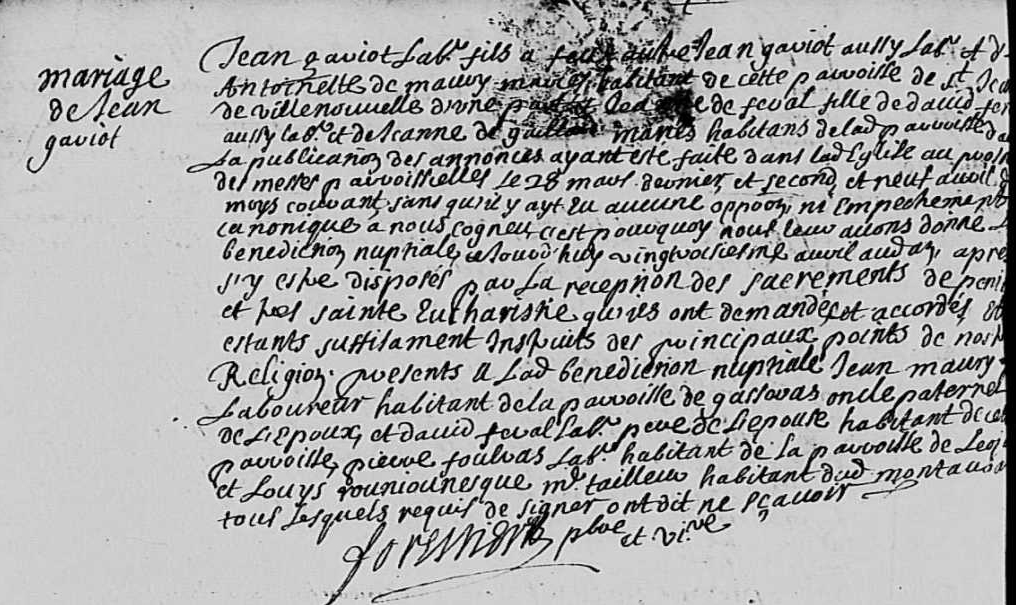 mariage
de Jean
gaviot
Jean gaviot Labr. fils a feu autre Jean gaviot aussy Labr. et d
Antoinette de maury maries habitant de cette parroisse de St Jea
de villenouvelle d'une part et de feral fille de david fer
aussy labr. et de Jeanne de maries habitans de lad parroisse d
La publication des annonces ayant esté faite dans lad Eglise au
des messes parroissielles le 28 mars dernier, et second, et neuf avril
moys courant sans qu'il y ayt eu aucune oppoon, ni Empechement
canonique a nous cogneu c'est pourquoy nous leur avons donné
benediction nuptiale cejourd'huy vingtroisiesme avril aud an, apre
s'y estre disposés par La reception des sacrements de peni
et tres sainte Eucharistie qu'ils ont demandés, et accordés Et
estants suffisament Instruits des principaux points de nost
Religion. presents a Lad benediction nuptiale Jean maury
Laboureur habitant de la parroisse de gassaras oncle paternel
de L'Epoux, et david feral Labr. pere de L'epouse habitant de ce
parroisse, pierre foulras Labr. habitant de La parroisse de Leo
et Louys md. tailleur habitant dud montau
tous Lesquels requis de signer ont dit ne sçavoir
pbre et vire